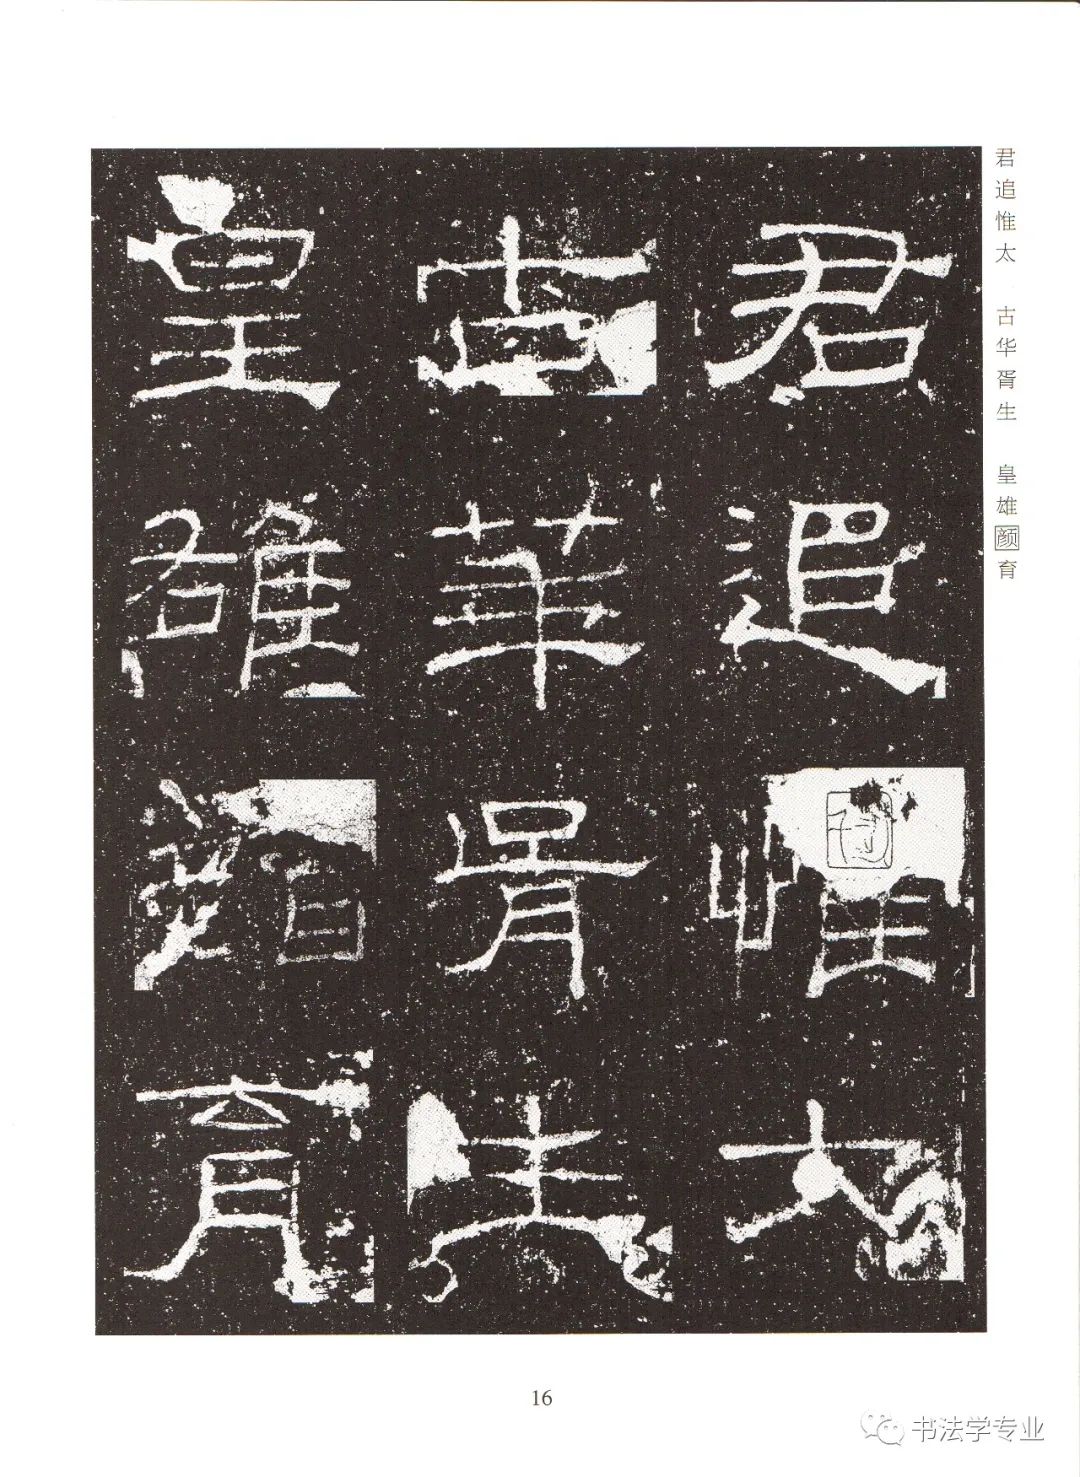 君追惟太
古華胥生
皇雄顏育
君追惟太 古华胥生 皇雄颜育
16
书法学专业